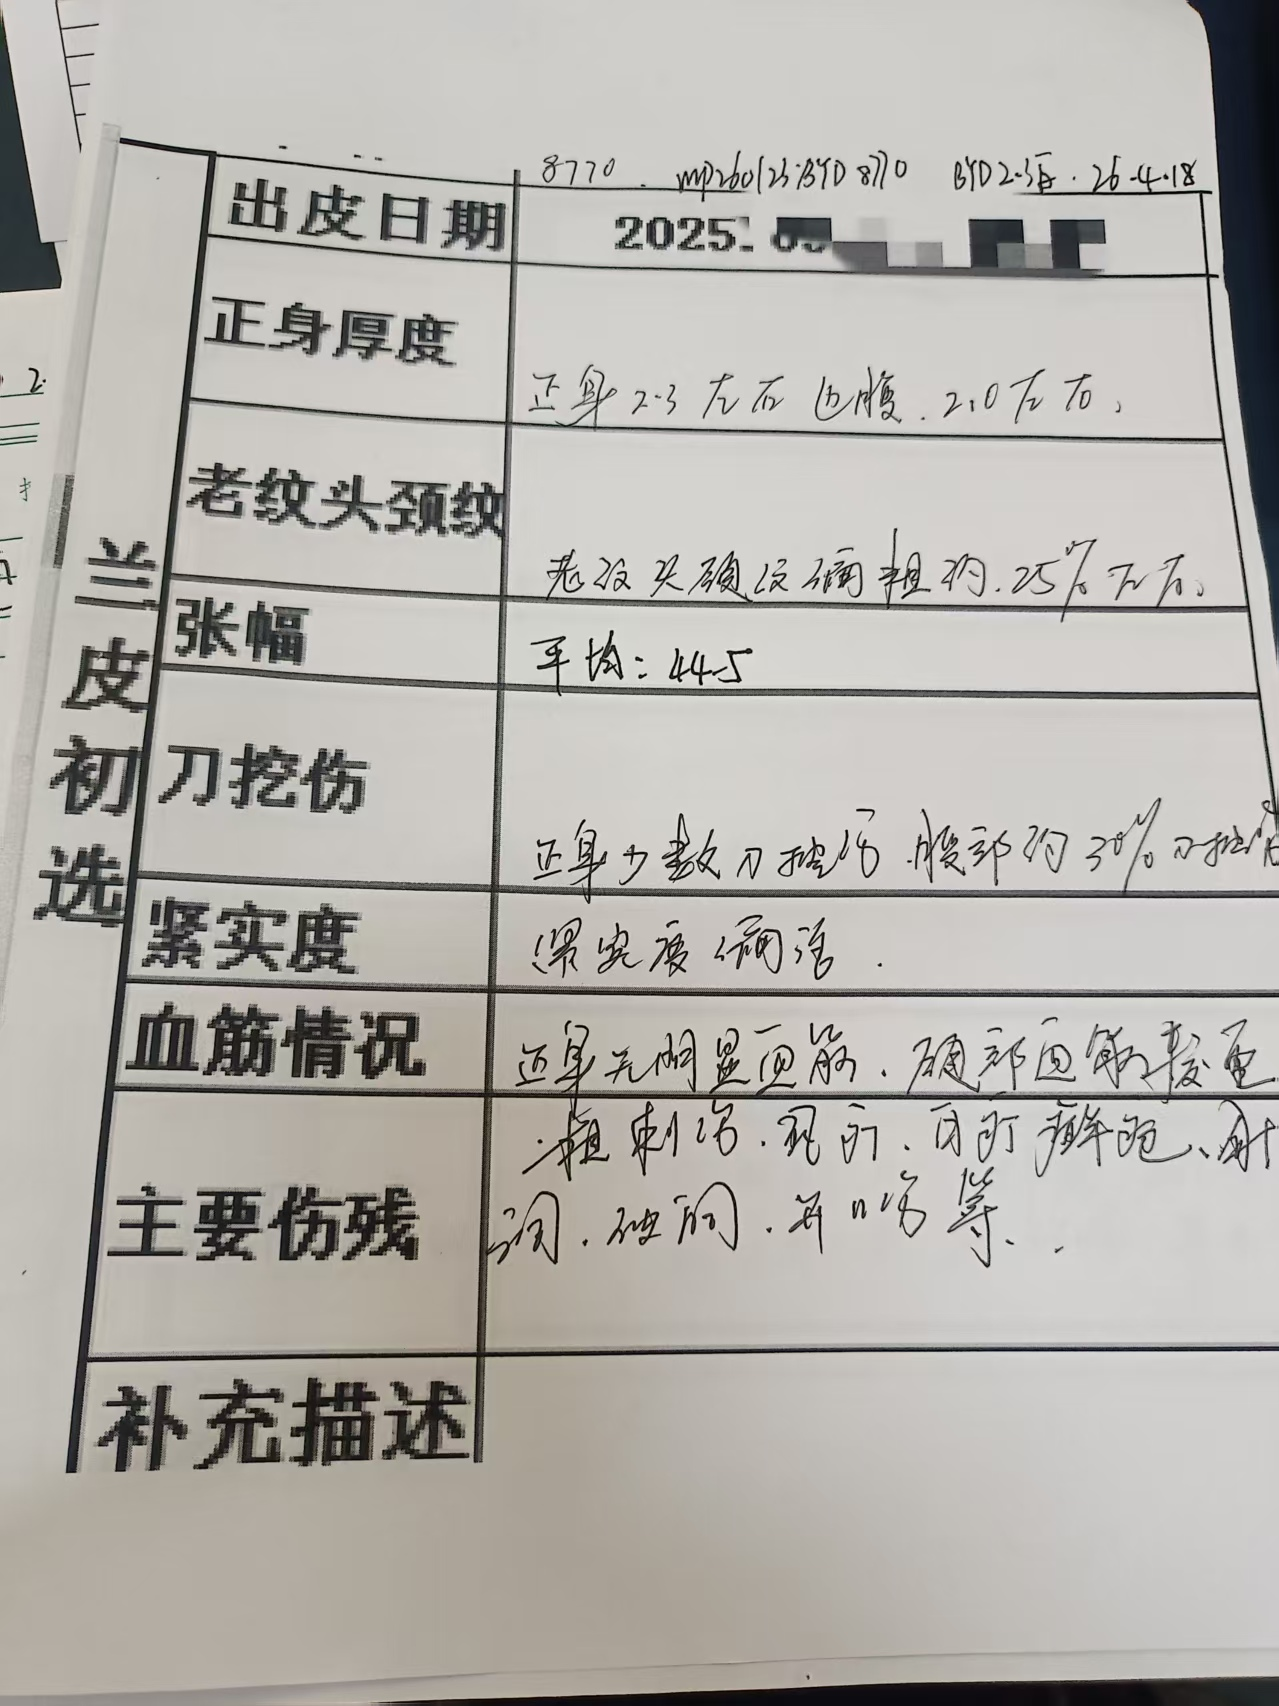 8770 . mp260123.BYD8770 BYD2.3 . 26.4.18
兰皮初选
出皮日期 2025.
正身厚度 正身2.3左右 边腹.2.0左右.
老纹头颈纹 老纹头颈纹偏粗约.25%左右.
张幅 平均:44.5
刀挖伤 正身少数刀挖伤.腹部约30%刀挖伤
紧实度 紧实度偏
血筋情况 正身无明显血筋.颈部血筋较重
主要伤残 粗刺伤.
洞.破洞.等.
补充描述
2.